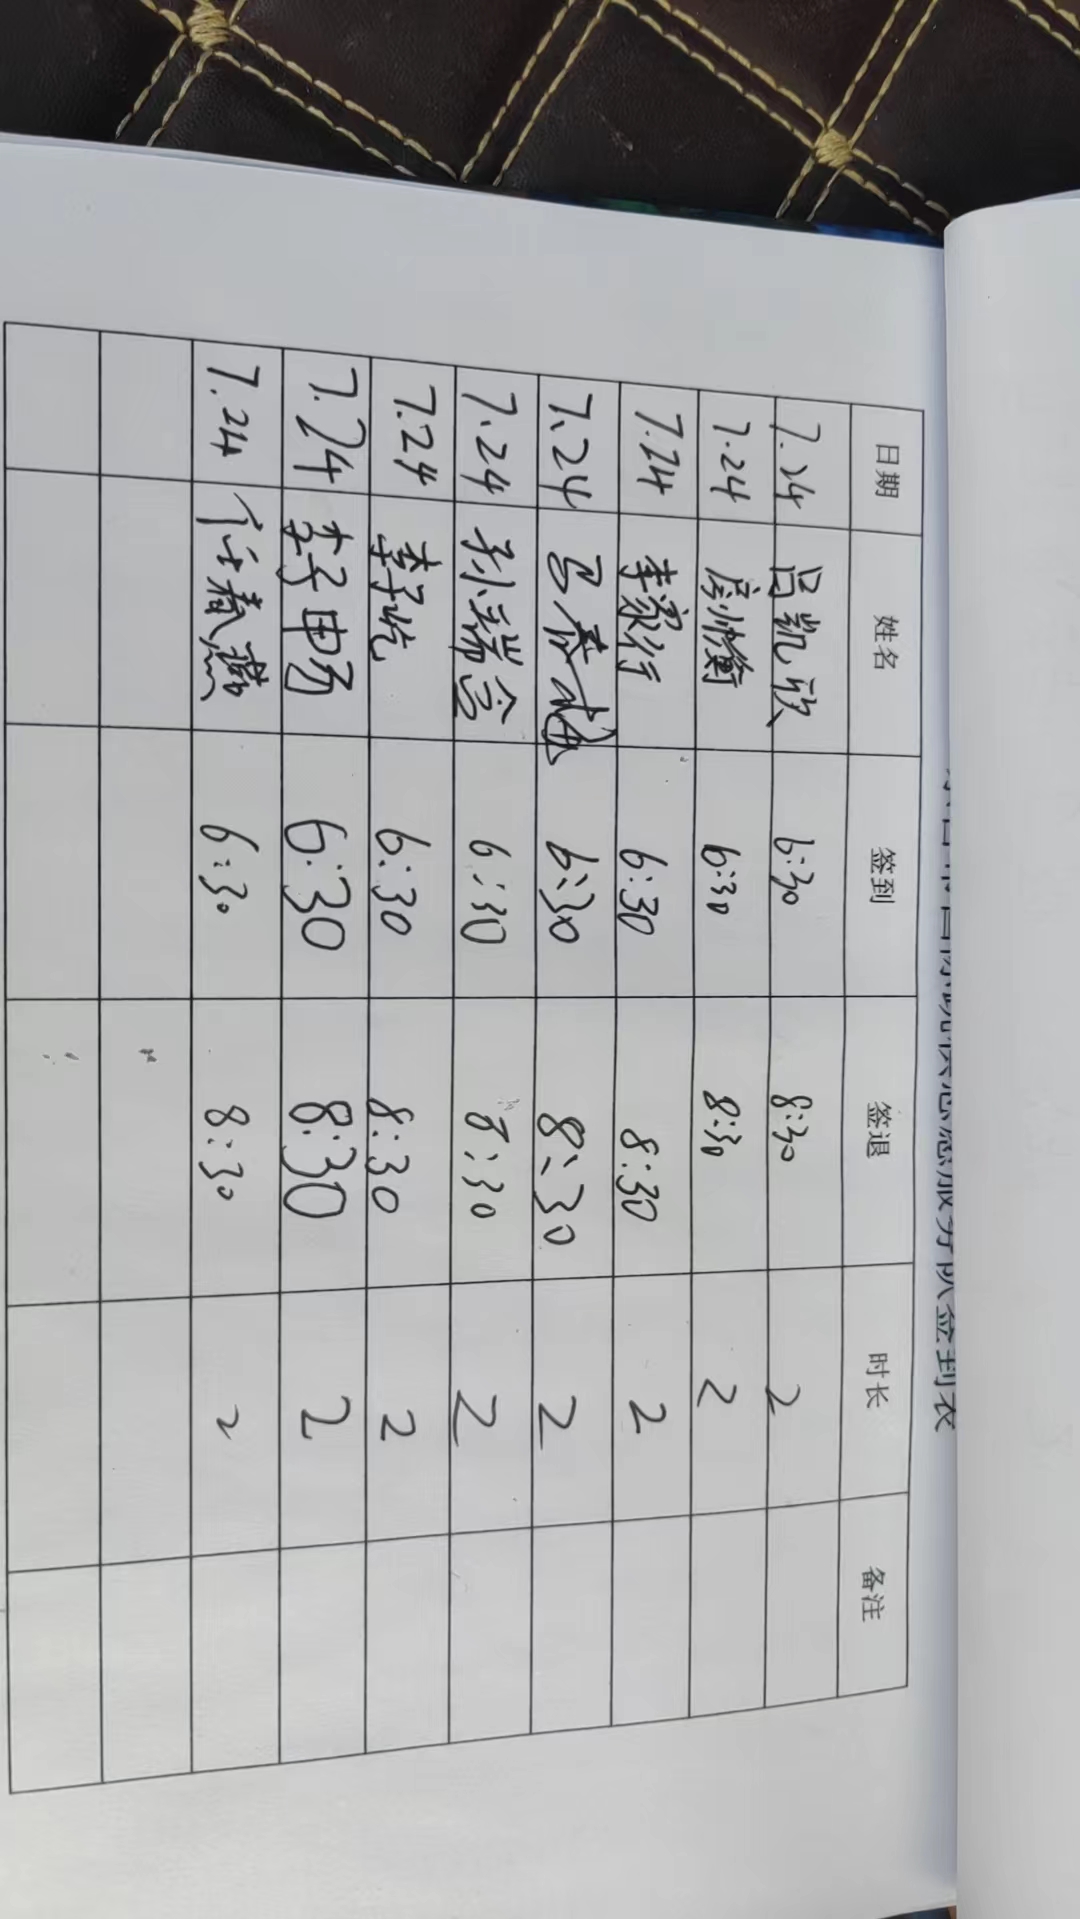 服务队签到表
日期 姓名 签到 签退 时长 备注
7.24 吕凯欣 6:30 8:30 2
7.24 房帅衡 6:30 8:30 2
7.24 李家行 6:30 8:30 2
7.24 6:30 8:30 2
7.24 孙瑞 6:30 8:30 2
7.24 李子屹 6:30 8:30 2
7.24 李子毋 6:30 8:30 2
7.24 任春燕 6:30 8:30 2